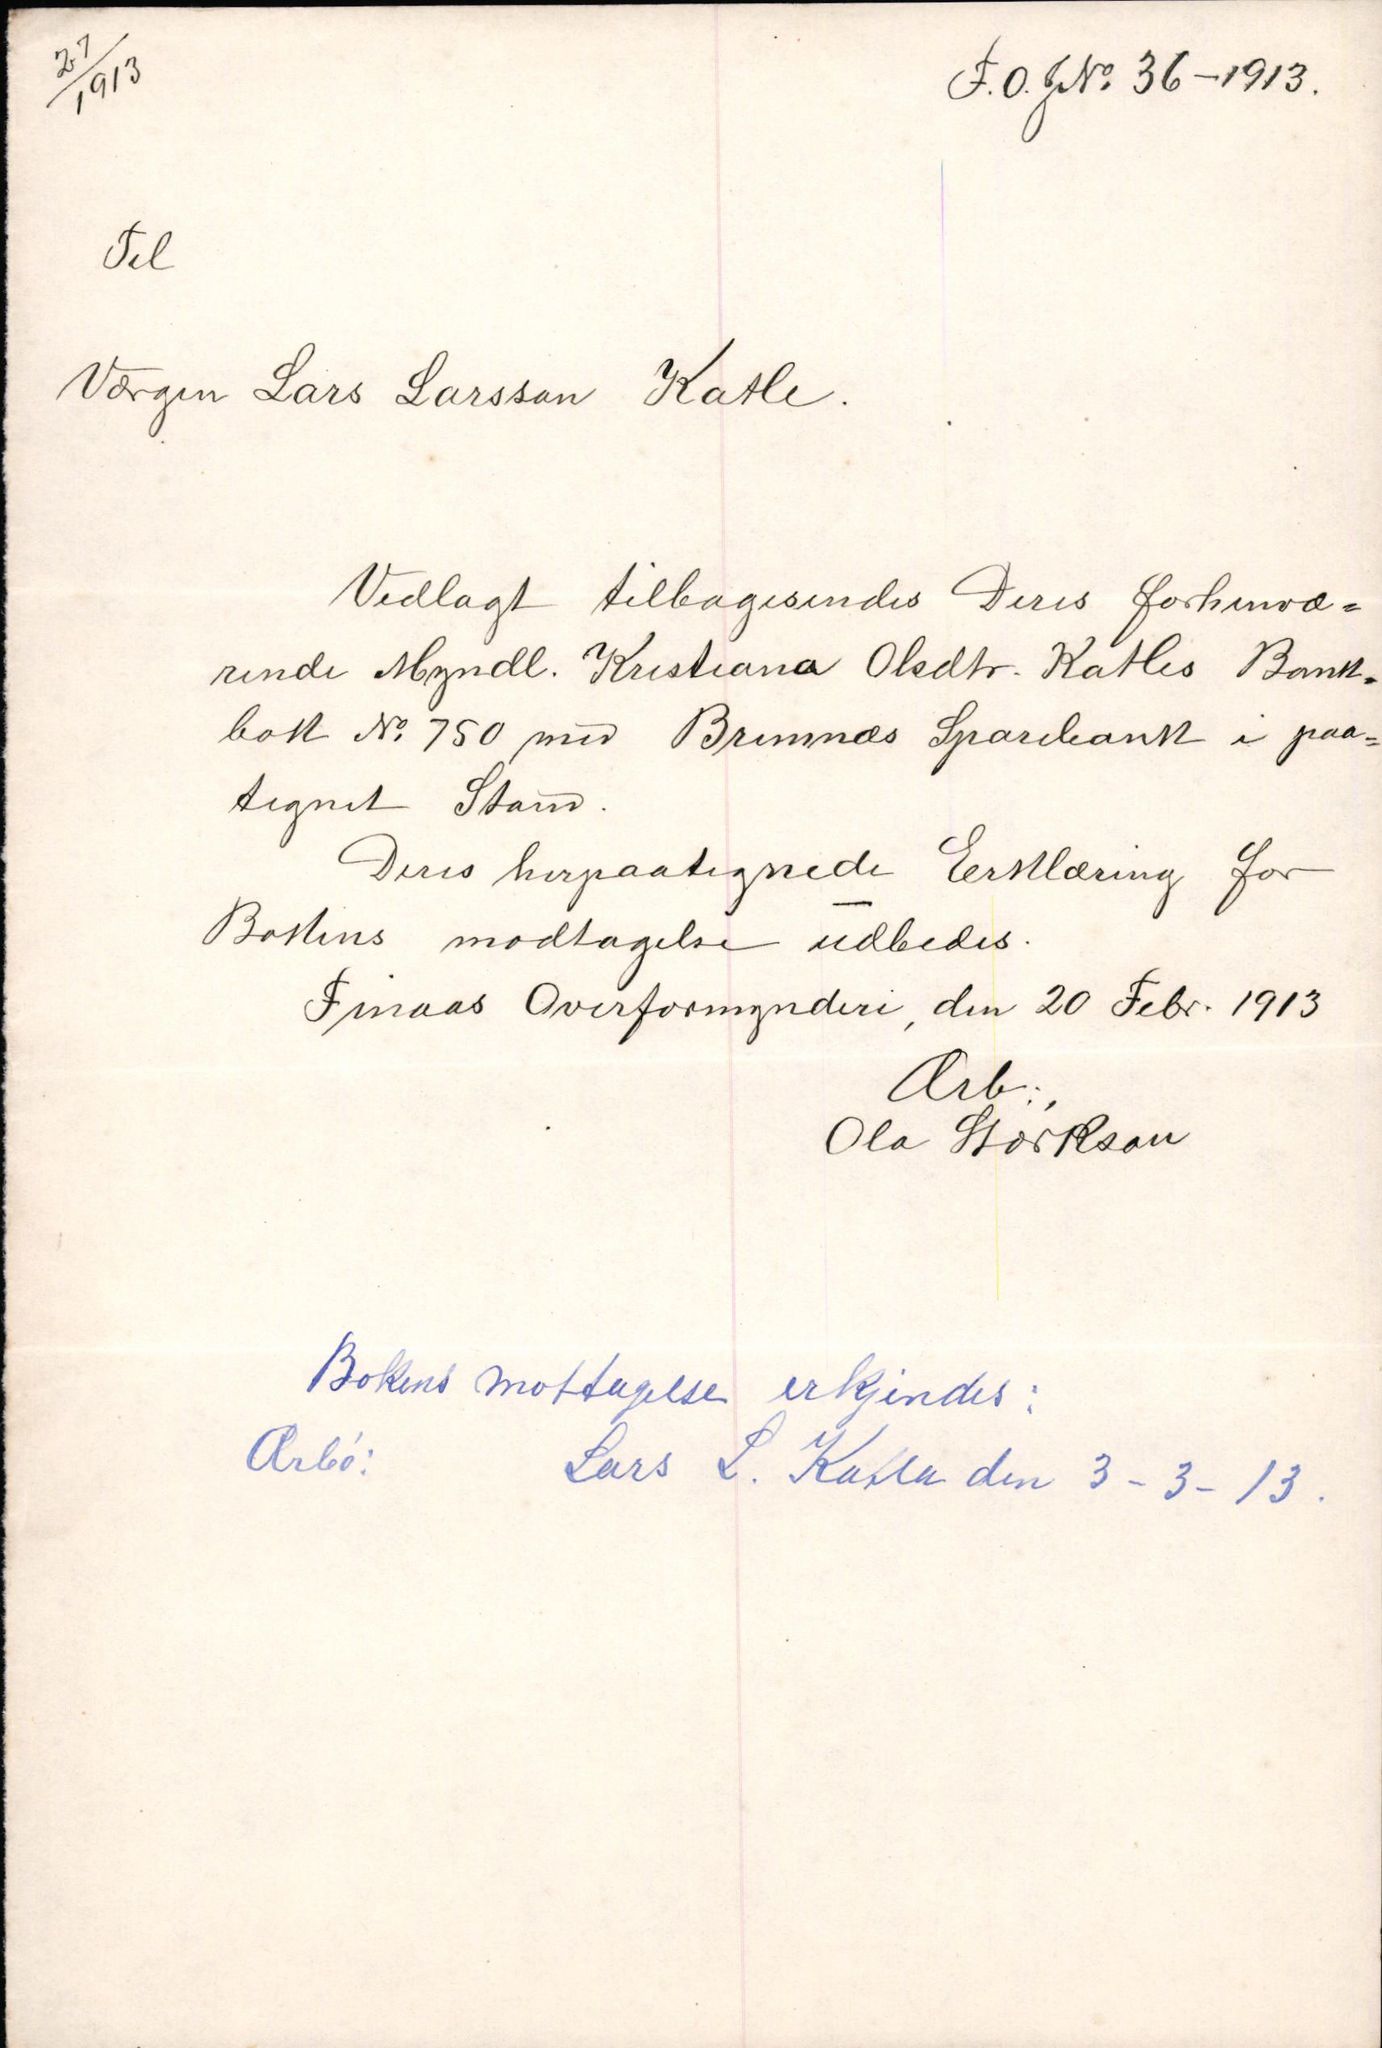 27/1913
F.O.J.No. 36-1913.
Til
Værgen Lars Larsson Katle.
Vedlagt tilbagesendes Deres forhenvæ=
rende Myndl. Kristiana Olsdtr. Katles Bank=
bok No. 750 med Bremnæs Sparebank i paa=
tegnet Stand.
Deres herpaategnede Eerklæring for
Bokens modtagelse udbedes.
Finaas Overformynderi, den 20 Febr. 1913
Ærb.,
Ola Størkson
Bokens mottagelse erkjendes:
Ærbø: Lars L. Katla den 3-3-13.